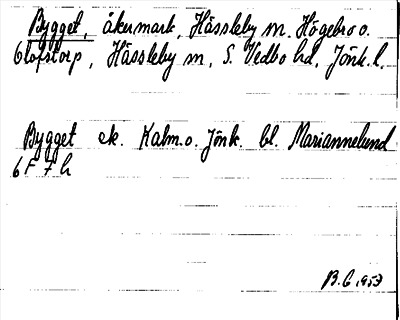 Bygget, åkermark, Hässleby m. Högebro o.
Olofstorp, Hässleby m, S. Vedbo hd, Jönk. l.
Bygget ek. Kalm. o. Jönk. bl. Mariannelund
6 F 7 h
B.G 1953